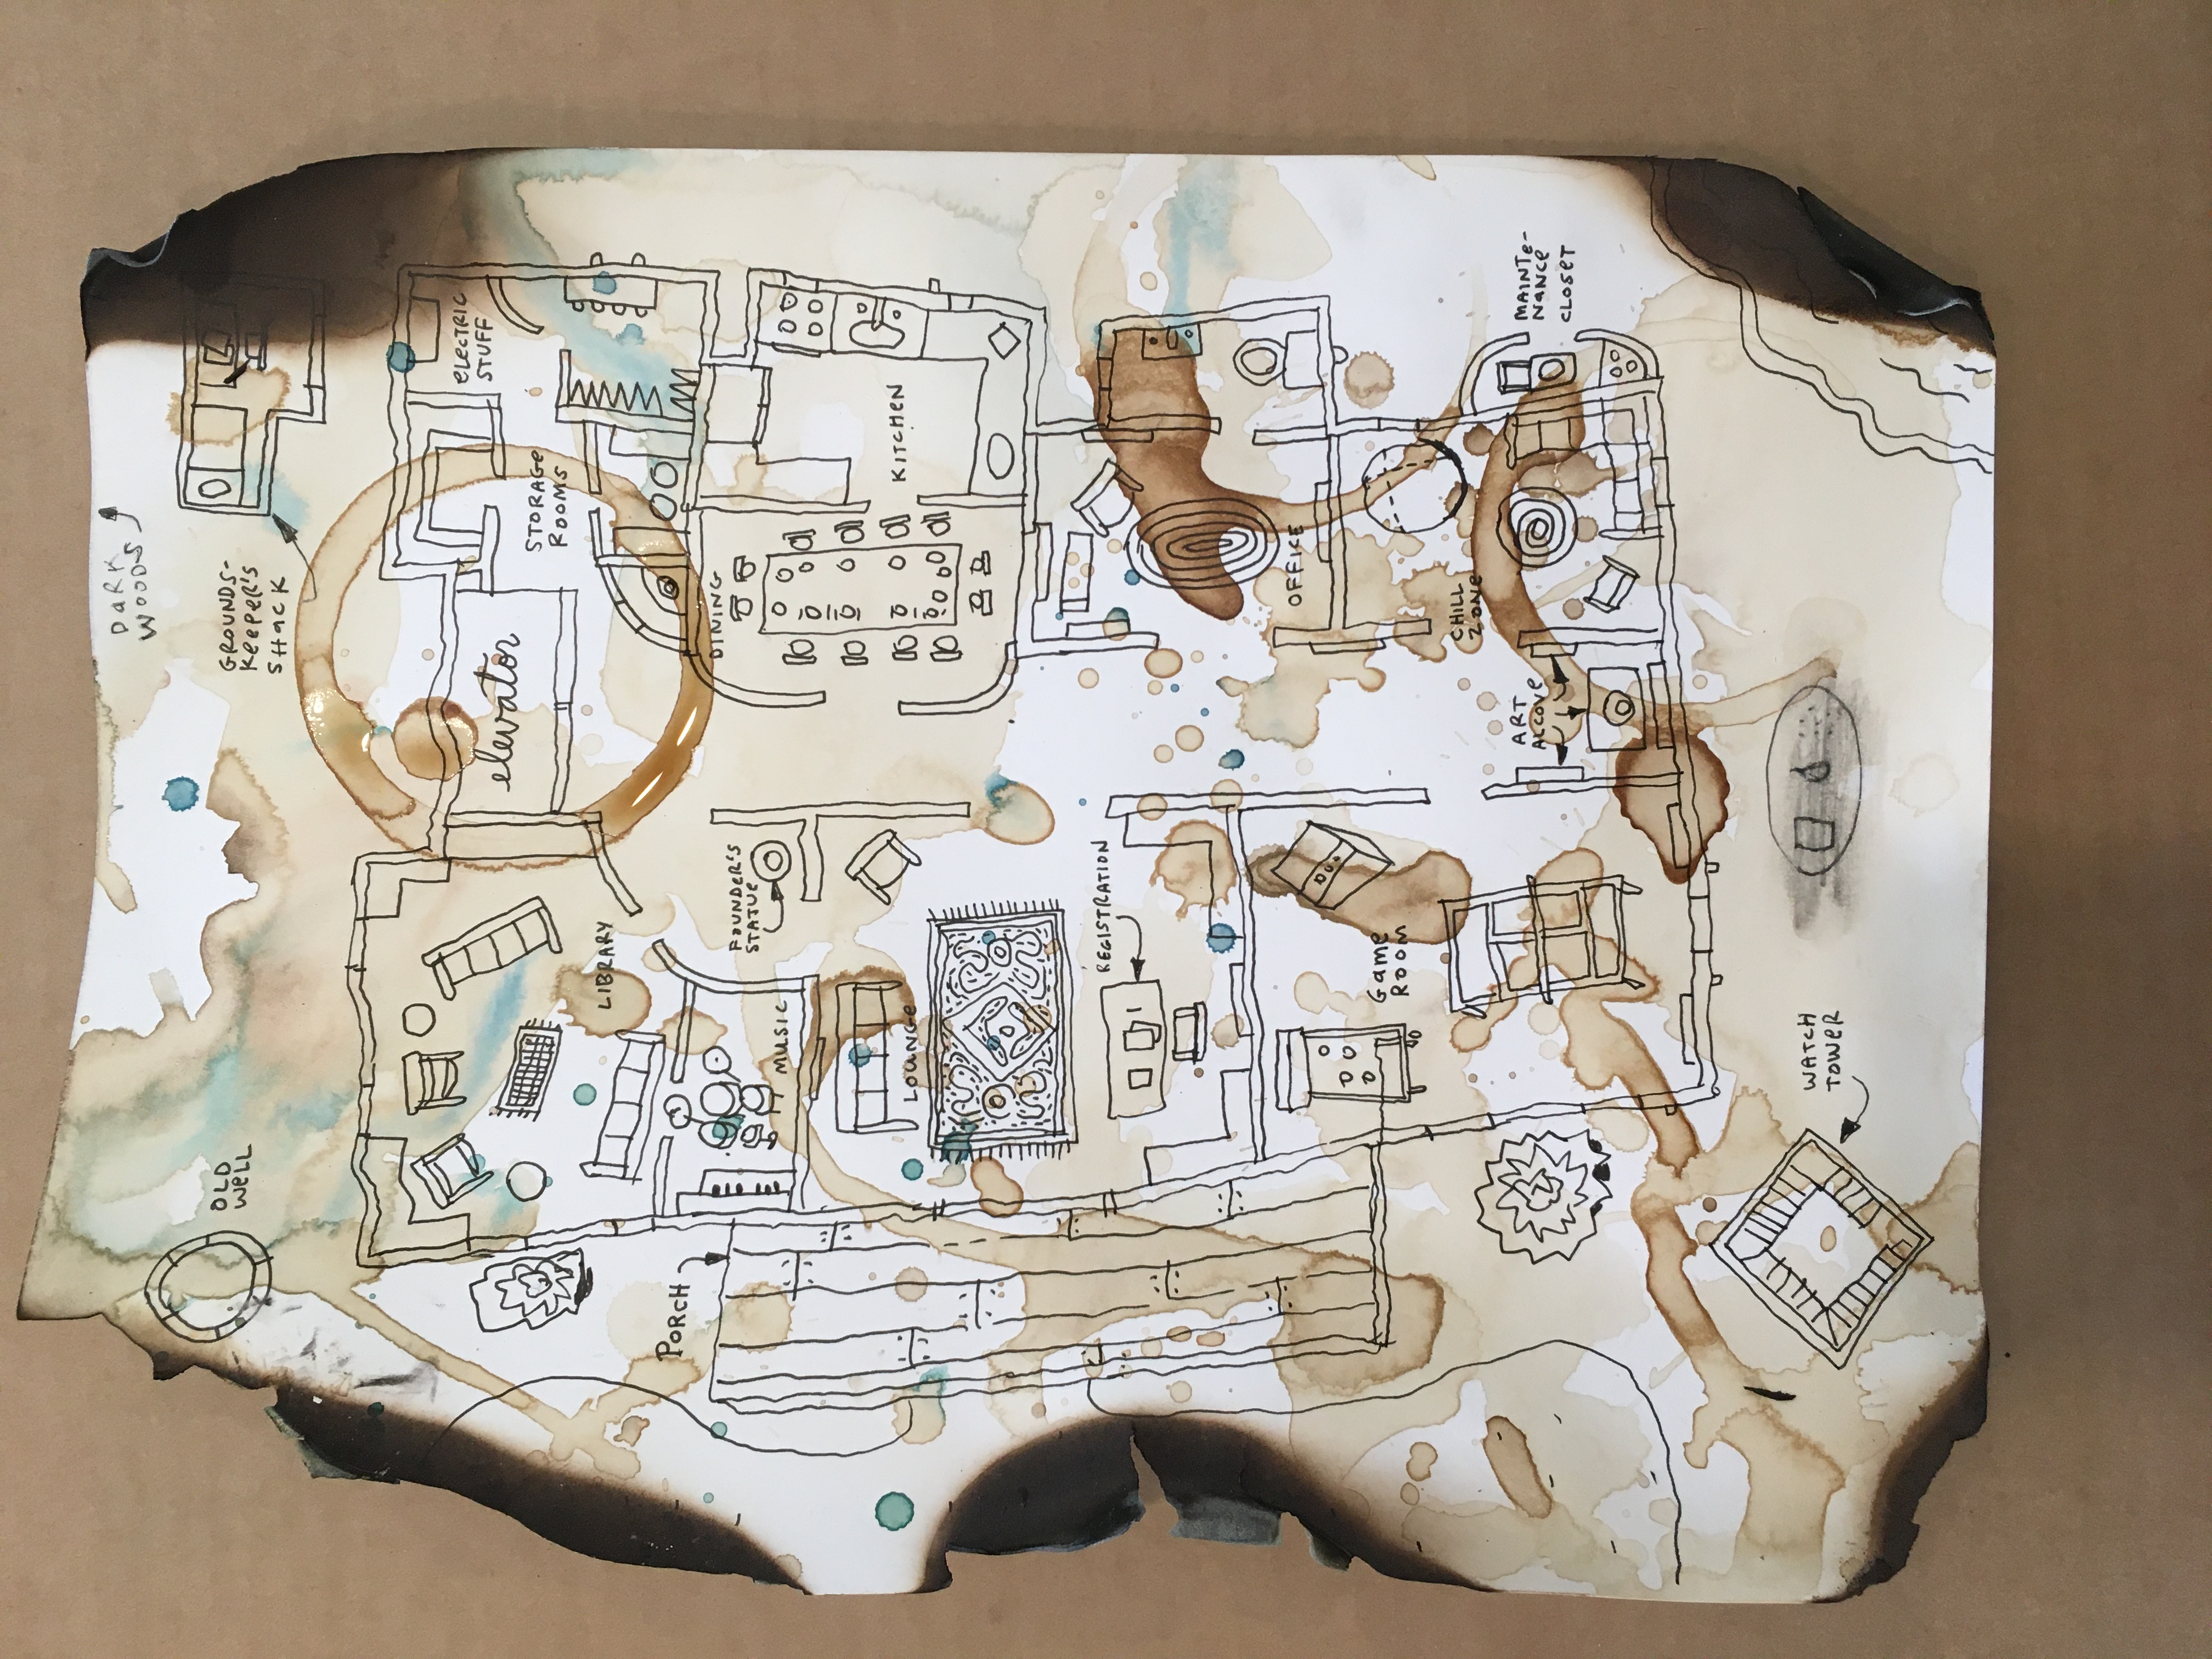 DARK
WOODS
OLD
WELL
GROUNDS-
KEEPER'S
SHACK
ELECTRIC
STUFF
elevator
STORAGE
ROOMS
LIBRARY
PORCH
DINING
FOUNDER'S
STATUE
MUSIC
KITCHEN
LOUNGE
REGISTRATION
OFFICE
GAME
ROOM
CHILL
ZONE
ART
ALCOVE
MAINTE-
NANCE
CLOSET
WATCH
TOWER